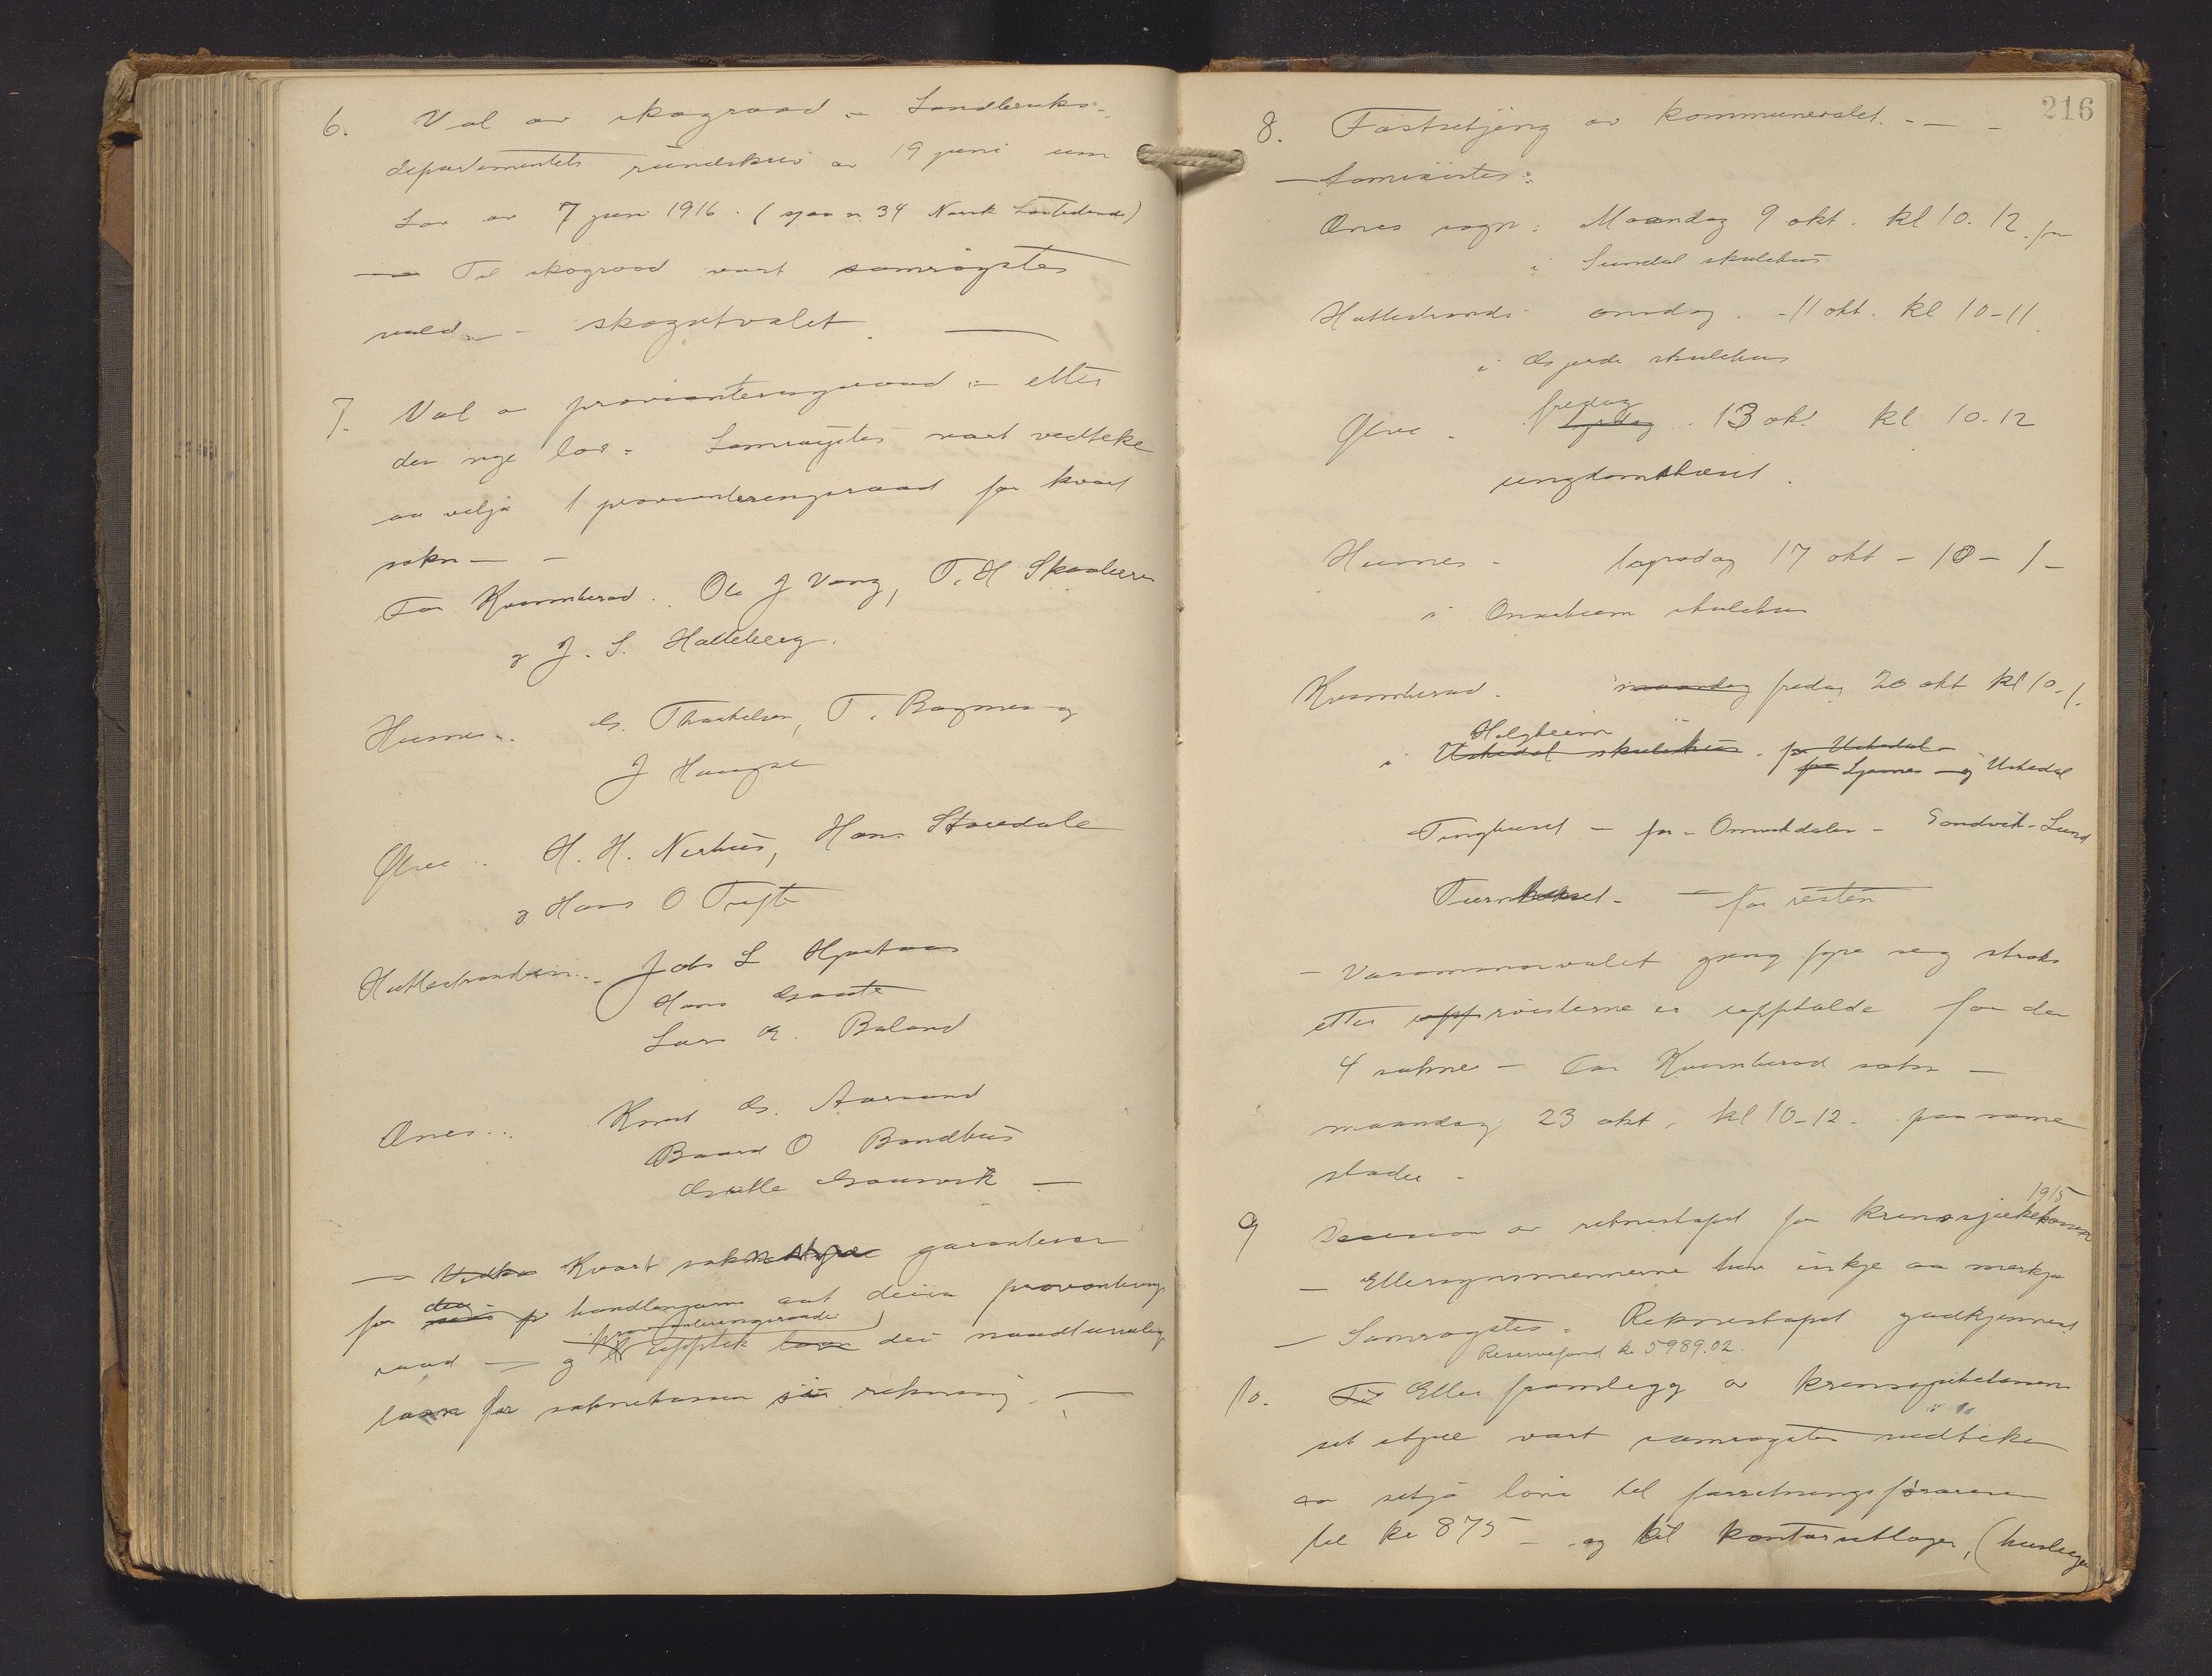 6. Val av skograad - Landbruks-
departementets rundskriv av 19 juni um
Lov av 7 juni 1916. ( n. 34 Norsk Lovtidende)
— Til skograad vart samrøystes
vald - skogutvalet. —
7. Val av provianteringsraad - etter
den nye lov - Samrøystes vart vedteke
aa velja 1 provianteringsraad for kvart
sokn - -
For Kvinnherad. Ole J Vang, T. H Skaaluren
og J. S. Halleberg.
Husnes. G. Thorkelsen, T. Bogsnes og
J Haugse
Ølve H. H. Nerhus, Hans Storedale
og Hans O Tufte
Hatlestranden. Jab L Hjortaas
Hans Gaaste
Lars E. Baland
Ænes. Knut G. Aarsand
Baard O Bondhus
Gutle Gausvik —
— Vedka Kvart soknestyre garanterar
for dei handlingarne aat deira provianterings
provianteringsraadi
raad — og upptek laan dei naudturvelege
laan for soknekassen si rekning. —
216
8. Fastsetjing av kommunevalet. - — -
— Samrøistes:
Ænes sogn: Maandag 9 okt. kl 10-12 fm
i Sundal skulehus
Hatlestrand - onsdag. - 11 okt. kl 10-11.
i skulehus
fredag
Ølve - lyrdag. 13 okt kl 10-12
ungdomshuset.
Husnes - tysdag 17 okt - 10 - 1 -
i Onarheim skulehus
Kvinnherad - maandag fredag 20 okt kl 10-1.
Helgheim
i Uskedal skulehus. for Uskedal -
for Ljosnes - og Uskedal
Tinghuset - for - Omvikdalen - Sandvik - Lund
Turnhuset - — for resten
- Varamannsvalet gjeng fyre seg straks
etter upprøisterne er upptalde for dei
4 sokne - For Kvinnherad sokn —
maandag 23 okt. kl 10-12 - paa same
stader -
1915
9 Decision av rekneskapet for krinssjukekassen
— Ettersynsmennerne hev inkje aa merkja
— Samrøystes - Rekneskapet godkjennest.
Reservefond kr 5989.02.
10. Etter framlegg av krinssjukekassen
sit styre vart samrøystes vedteke
aa setja løni til forretningsføraren
til kr 875 - og til kontorutlogor, (husleige